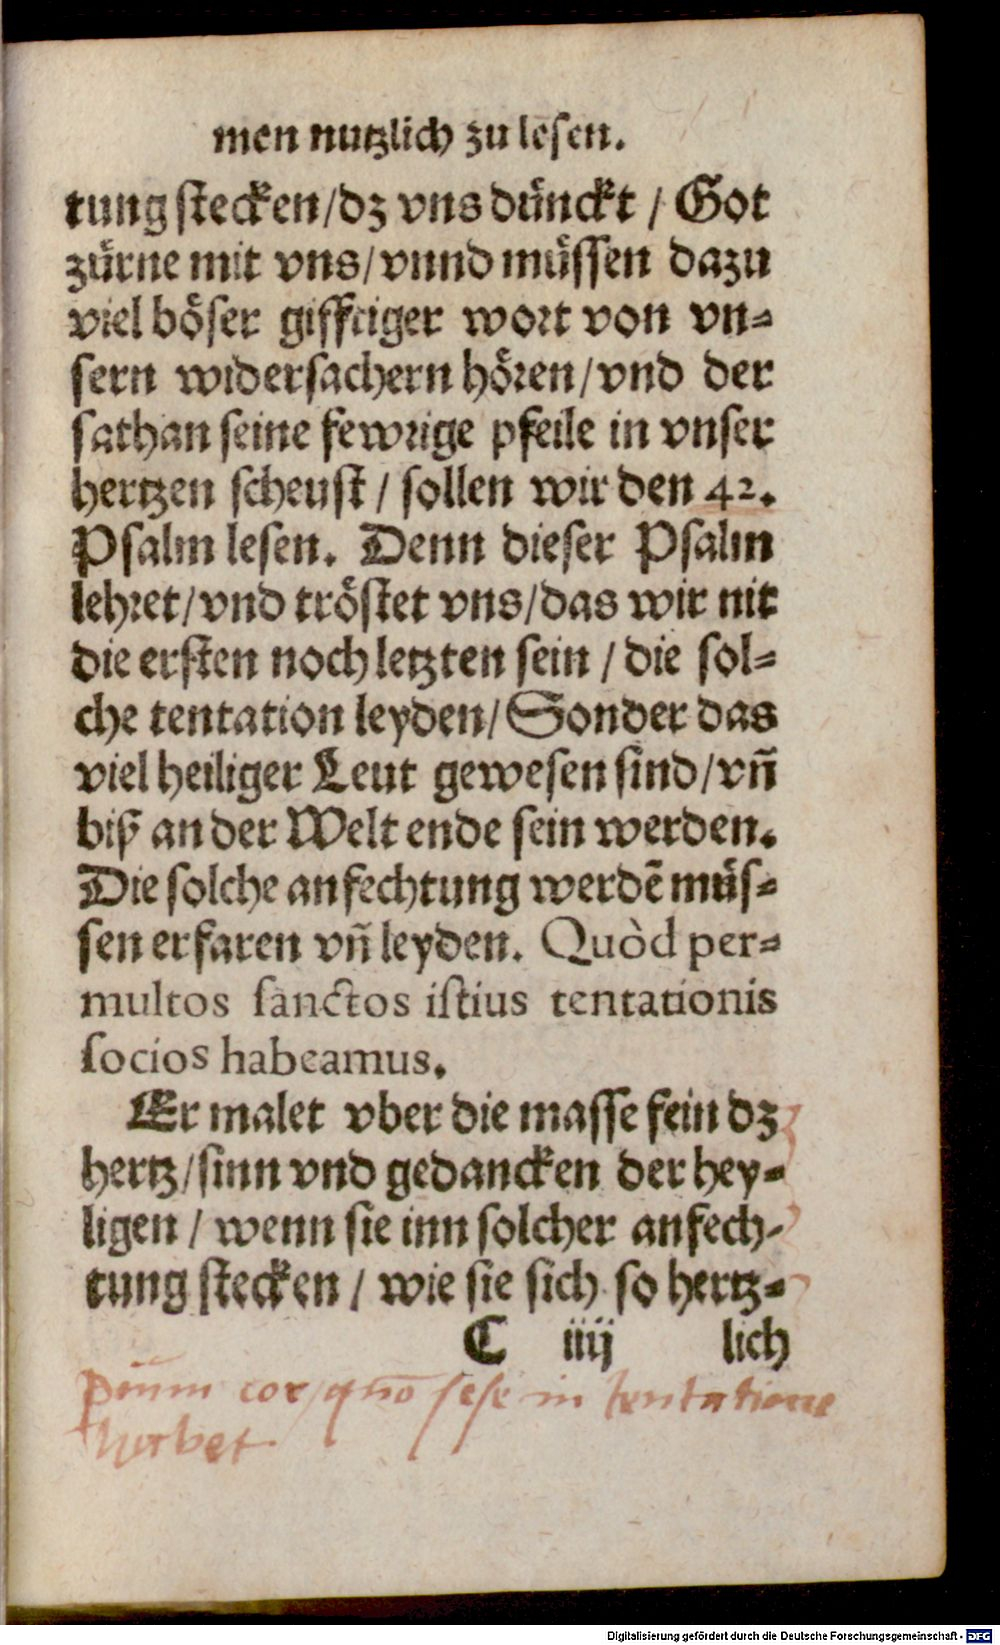 men nutzlich zu lesen.
tung stecken/dz vns dünckt / Got
zürne mit vns/vnnd müssen dazu
viel böser gifftiger wort von vn-
sern widersachern hören/vnd der
sathan seine fewrige pfeile in vnser
hertzen scheust / sollen wir den 42.
Psalm lesen. Denn dieser Psalm
lehret/vnd tröstet vns/das wir nit
die ersten noch letzten sein / die sol-
che tentation leyden/Sonder das
viel heiliger Leut gewesen sind/vñ
biß an der Welt ende sein werden.
Die solche anfechtung werdẽ müs-
sen erfaren vñ leyden. Quòd per-
multos sanctos istius tentationis
socios habeamus.
Er malet vber die masse fein dz
hertz/sinn vnd gedancken der hey-
ligen / wenn sie inn solcher anfech-
tung stecken / wie sie sich so hertz-
C iiij lich
cor, quõ sese in tentatione
habet
Digitalisierung gefördert durch die Deutsche Forschungsgemeinschaft - DFG